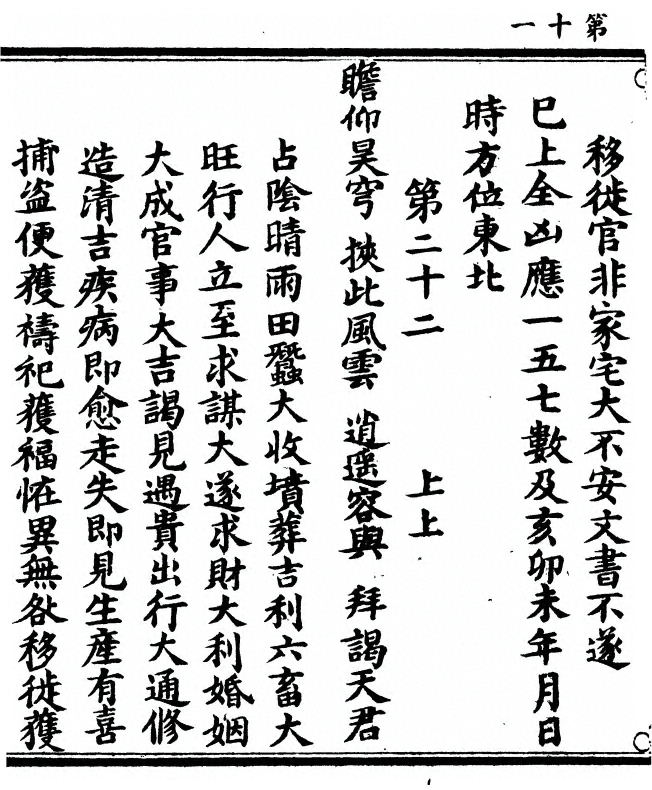 第十一
移徙官非家宅大不安文書不遂
巳上全凶應一五七數及亥卯未年月日
時方位東北
第二十二 上上
瞻仰昊穹 挾此風雲 逍遥容與 拜謁天君
占陰晴雨田蠶大收墳葬吉利六畜大
旺行人立至求謀大遂求財大利婚姻
大成官事大吉謁見遇貴出行大通修
造清吉疾病即愈走失即見生産有喜
捕盜便獲禱祀獲福恠異無咎移徙獲